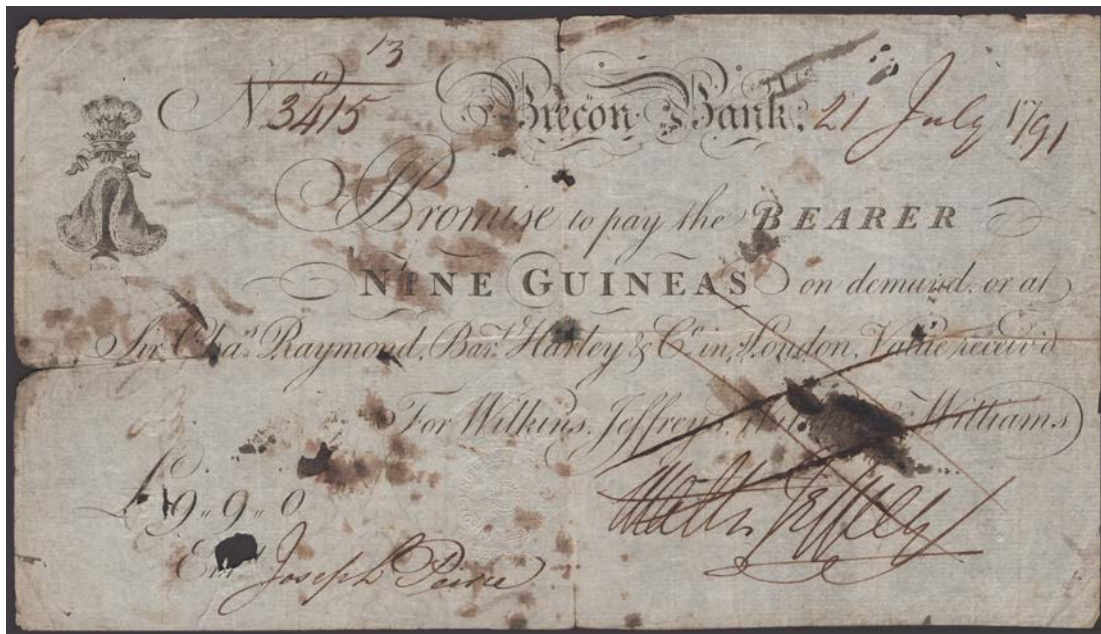 13
No. 3415 Brecon Bank, 21 July 1791
Promise to pay the BEARER
NINE GUINEAS on demand, or at
Sir Chas. Raymond, Bart. Harley & Co. in London, Value receiv'd
For Wilkins, Jeffreys, Williams
£9 „ 9 „ 0
Entd. Joseph